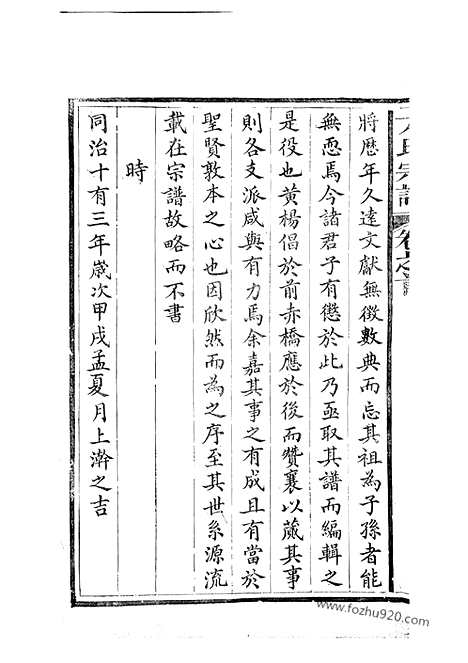 將歷年久遠文獻無徵數典而忘其祖為子孫者能
無恧焉今諸君子有懲於此乃亟取其譜而編輯之
是役也黃楊倡於前赤橋應於後而贊襄以蕆其事
則各支派咸與有力焉余嘉其事之有成且有當於
聖賢敦本之心也因欣然而為之序至其世系源流
載在宗譜故略而不書
時
同治十有三年嵗次甲戌孟夏月上澣之吉
www.fozhu920.com